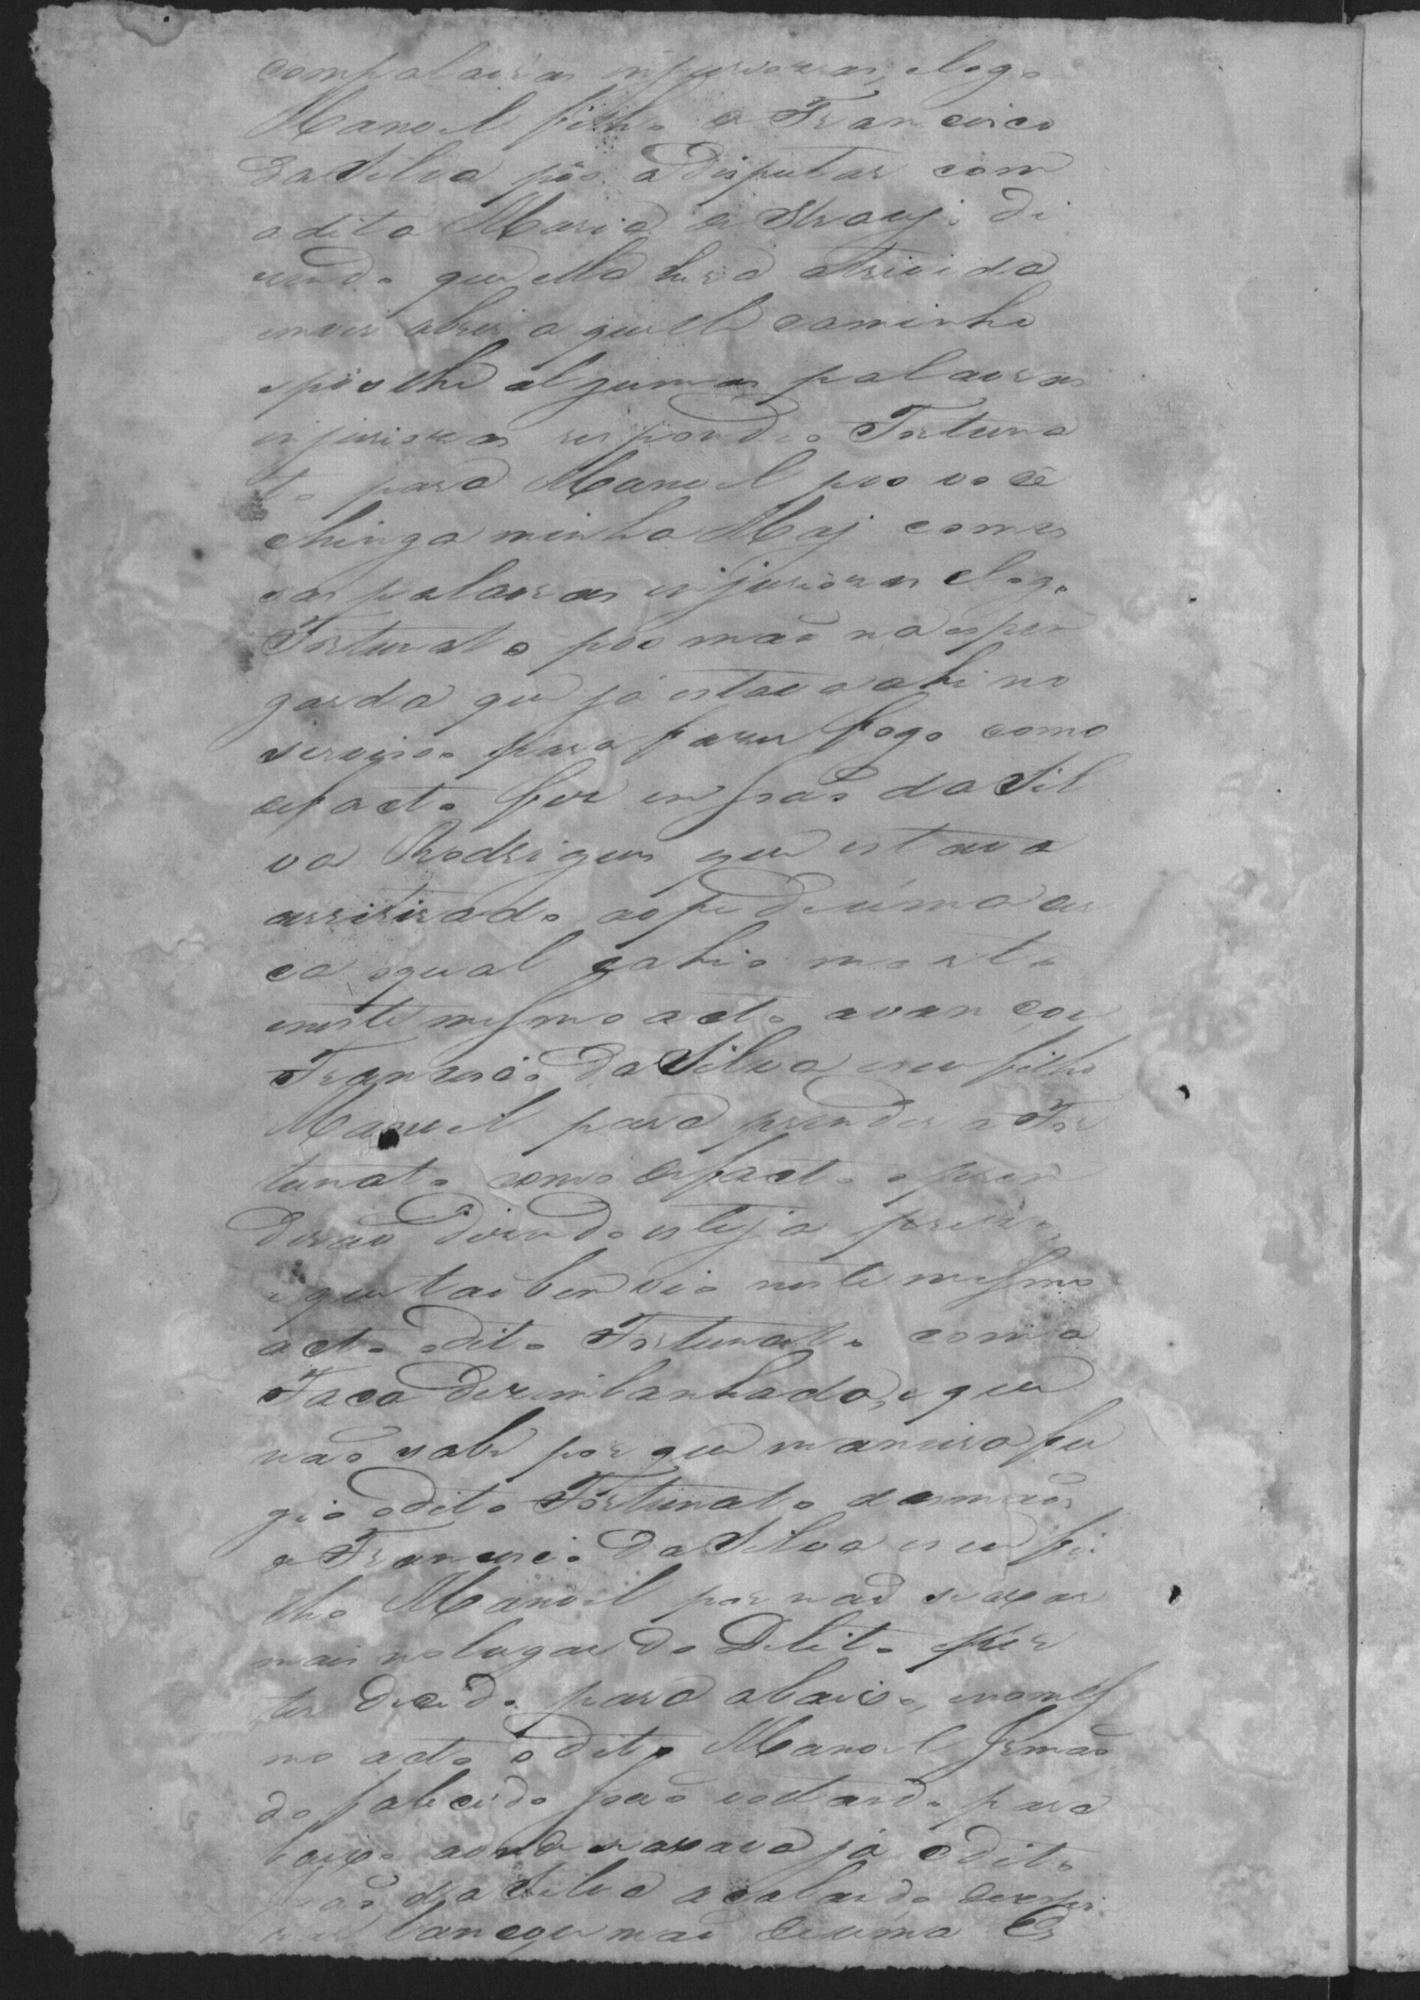 com palavras injuriozas, e logo
Manoel filho de Francisco
da Silva pôs a disputar com
a dita Maria de Araujo di
zendo que ella hera atrivida
em vir abrir a quelle caminho
e pôs lhe algumas palavras
injuriozas respondeo Fortuna
to para Manoel pois você
chinga minha Maj com es
sas palavras injuriozas e logo
Fortunato pôs mão na espin
garda que já estava ahi no
serviço para fazer fogo como
de facto fez em João da Sil
va Rodrigues que estava
arritirado ao pé de uma ar
ca o qual cahio morto
e neste mesmo acto avançou
Francisco da Silva e seu filho
Manoel para prender a For
tunato como de facto o pren
derão dizendo esteja prezo,
e que tãobem vio neste mesmo
acto o dito Fortunato com a
Faca dezimbanhada, e que
não sabe por que maneira fu
gio o dito Fortunato das mãos
de Francisco da Silva e seu fi
lho Manoel por não se axar
mais no lugar do Delito por
ter decido para abaixo, e no mes
mo acto o dito Manoel Irmão
do falecido João voltando para
baixo aonde se axava já o dito
João da Silva acabando de espi
rar lançou mão de uma Es